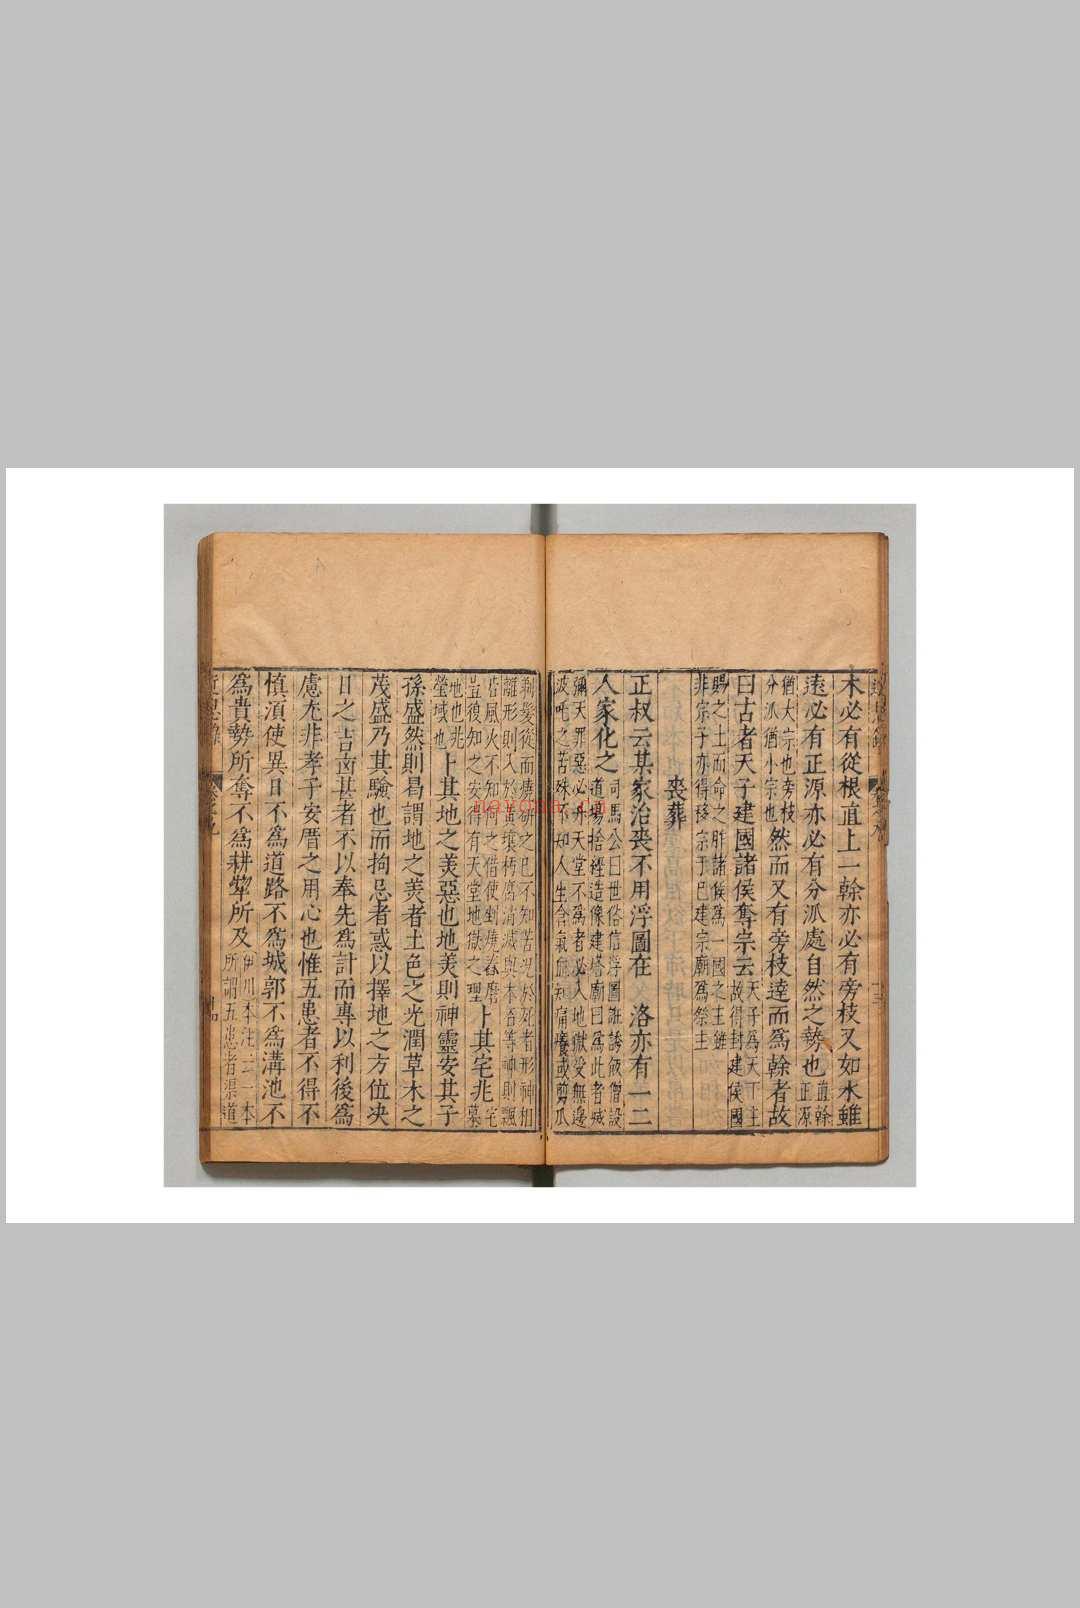 木必有從根直上一榦亦必有旁枝又如水雖
遠必有正源亦必有分派處自然之勢也直榦正源
猶大宗也旁枝分派猶小宗也然而又有旁枝達而爲榦者故
曰古者天子建國諸侯奪宗云天子爲天下主故得封建侯國
賜之土而命之胙諸侯爲一國之主雖
非宗子亦得移宗于己建宗廟爲祭主
喪葬
正叔云某家治喪不用浮圖在 洛亦有一二
人家化之司馬公曰世俗信浮圖誑誘飯僧設道場捨經造像建塔廟曰爲此者滅
彌天罪惡必升天堂不爲者必入地獄受無邊
波吒之苦殊不知人生含氣血知痛癢或剪爪
剃髮從而燒斫之已不知苦况於死者形神相
離形則入於黃壤朽腐消滅與木石等神則飄
若風火不知何之借使剉燒舂磨
豈復知之安得有天堂地獄之理卜其宅兆宅墓
地也兆塋域也卜其地之美惡也地美則神靈安其子
孫盛然則曷謂地之美者土色之光潤草木之
茂盛乃其驗也而拘忌者惑以擇地之方位决
日之吉凶甚者不以奉先爲計而專以利後爲
慮尤非孝子安厝之用心也惟五患者不得不
慎須使異日不爲道路不爲城郭不爲溝池不
爲貴勢所奪不爲耕犂所及伊川本注云一本所謂五患者渠道
近思錄
卷之九